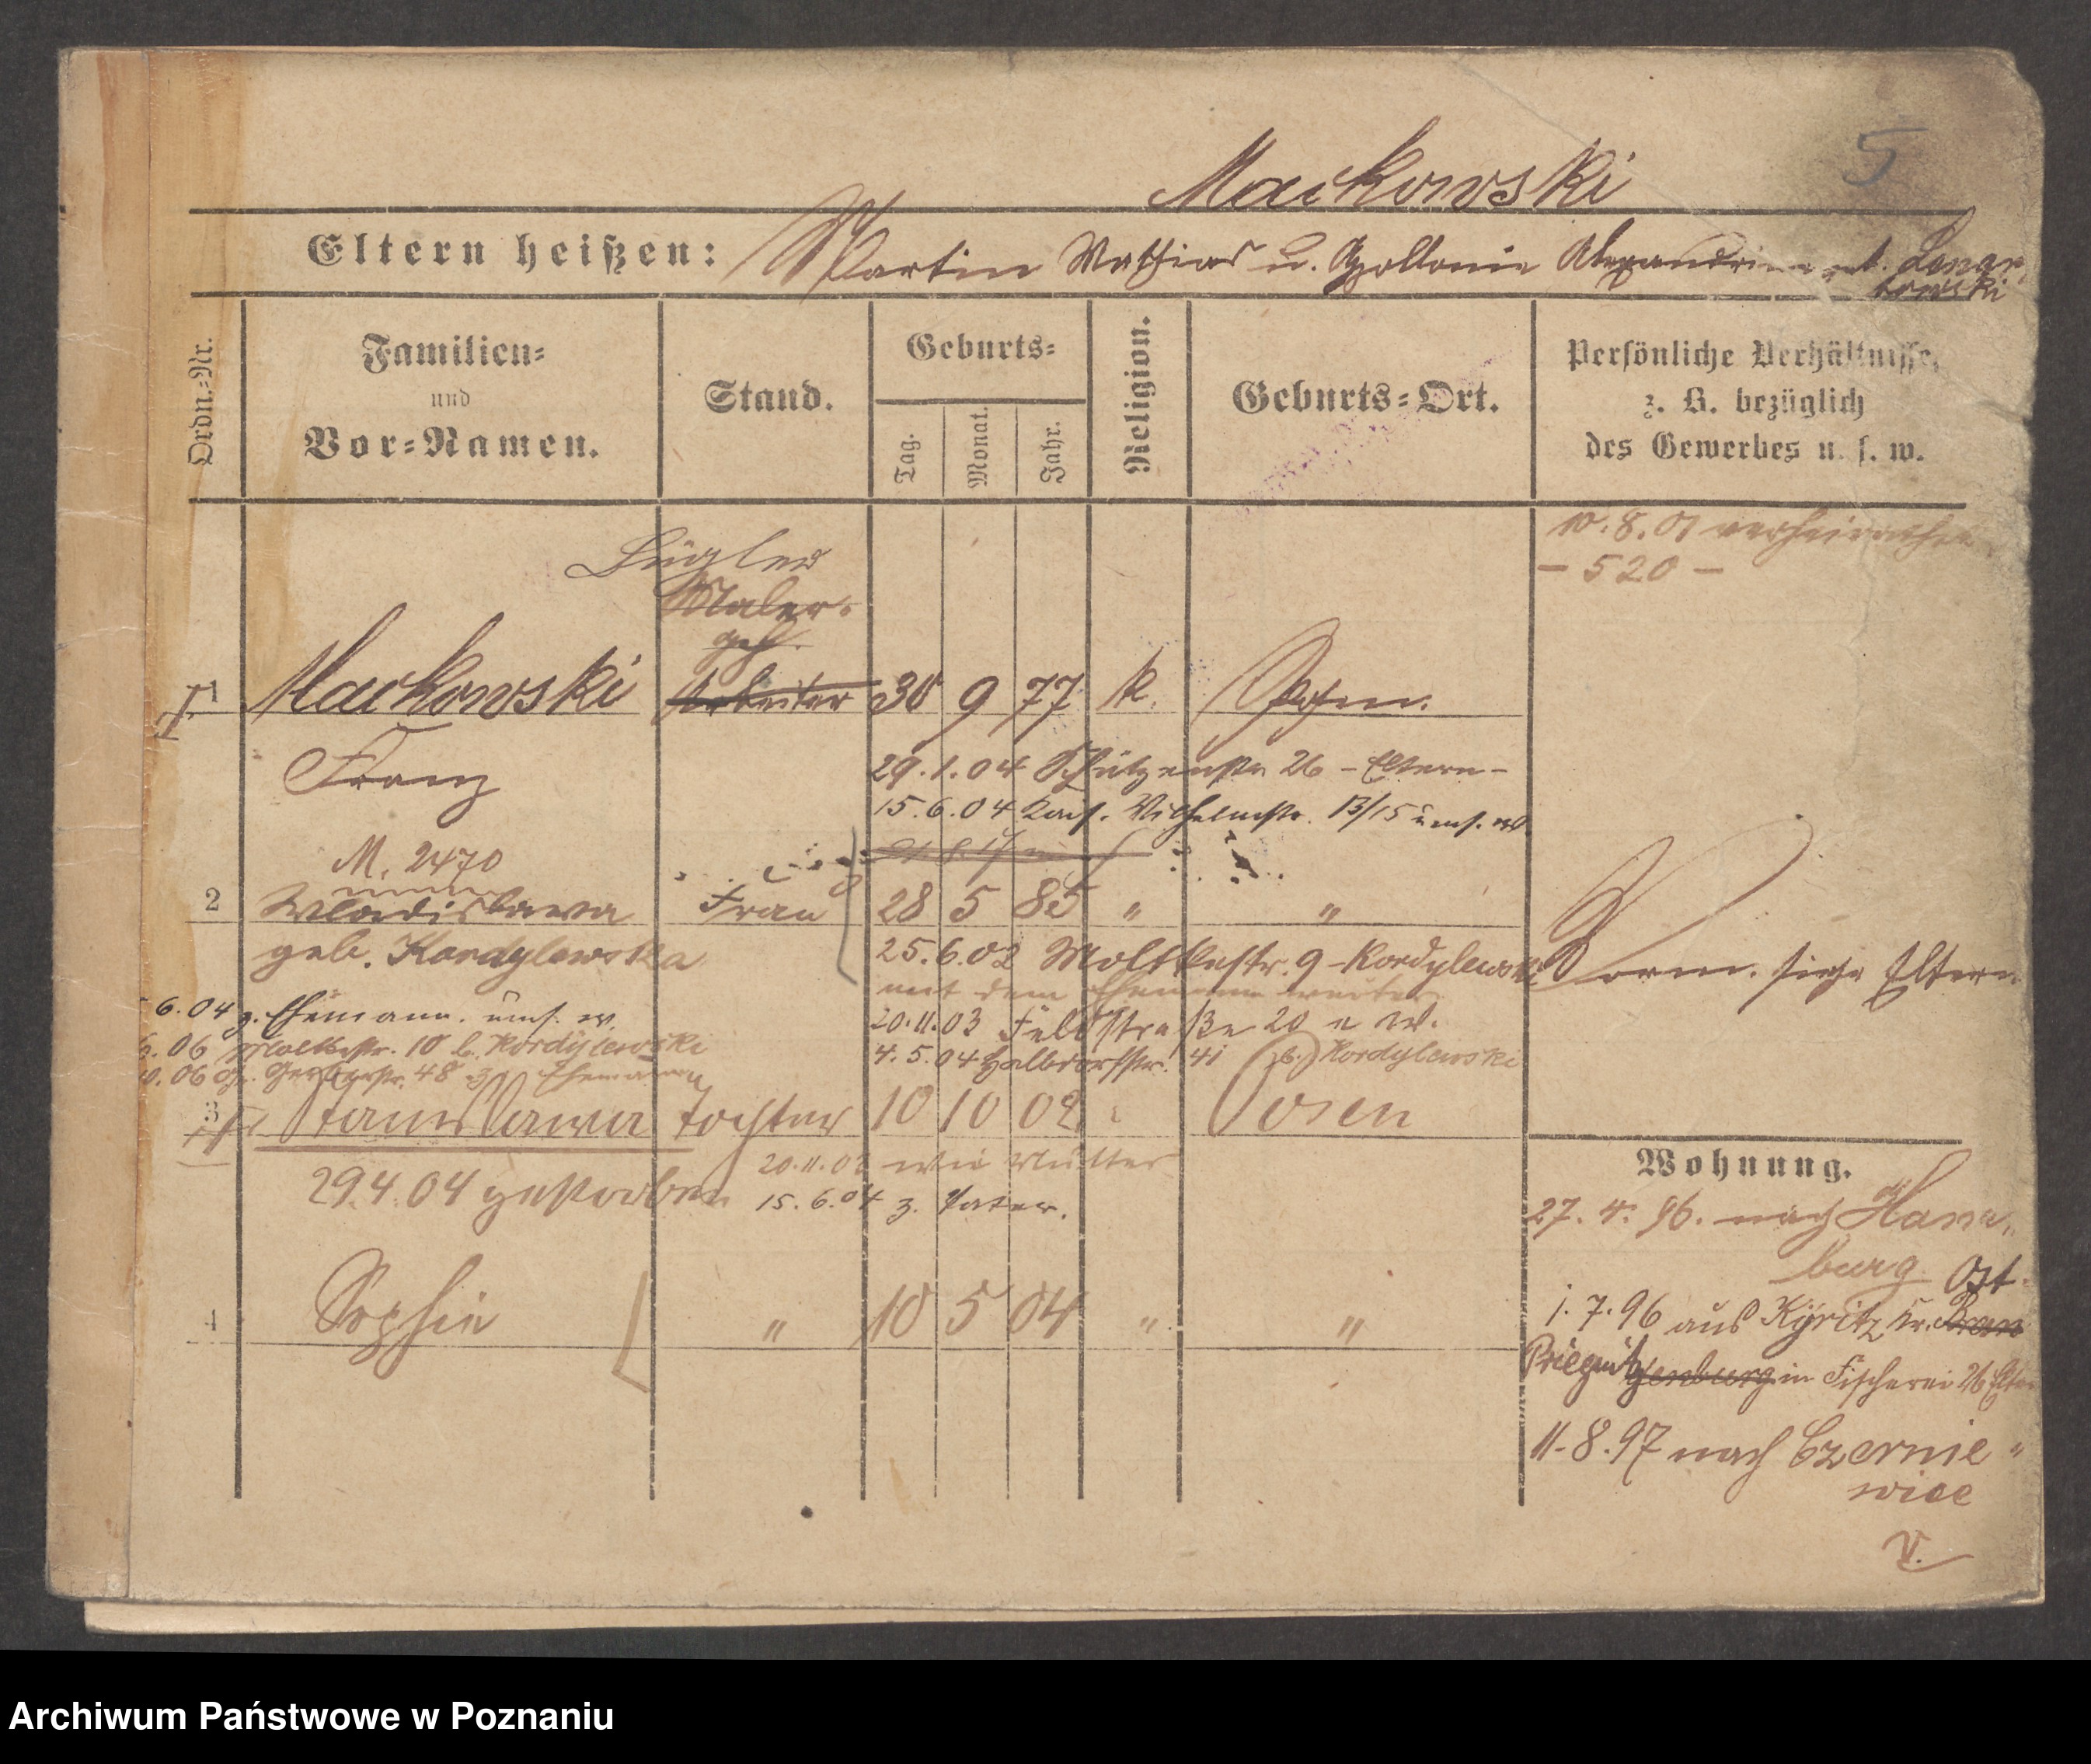 5
Mackowski
Eltern heißen: Martin Mathias u. Apollonie Alexandrine
Ordn.=Nr.
Familien=
und
Vor=Namen.
Stand.
Geburts=
Tag.
Monat.
Jahr.
Religion.
Geburts=Ort.
Persönliche Verhältnisse,
z. B. bezüglich
des Gewerbes u. s. w.
10.8.01 verheirathet
- 520 -
Bügler
Maler=
geh.
1 Mackowski Arbeiter 30 9 77 k. Posen.
Franz
29.1.04 Schützenstr 26 - Eltern -
15.6.04 Kais. Wilhelmstr. 13/15
M. 2470
2 Wladislawa Frau 28 5 85 " "
geb. Kordylewska
25.6.02 Moltkestr. 9 - Kordylewski
mit dem Ehemann weiter
6.04 z. Ehemann.
20.11.03 Feldstraße 20
06 Moltkestr. 10 b. Kordylewski
4.5.04 Halbdorfstr. 41 (b.) Kordylewski
06 Gerberstr. 48 z. Ehemann
Vorm. siehe Eltern
3 Stanislawa Tochter 10 10 02 Posen
20.11.03 wie Mutter
29.4.04 gestorben
15.6.04 z. Vater.
4 Sophie " 10 5 04 " "
Wohnung.
27.4.96. nach Ham
burg Ost
1.7.96 aus Kyritz Kr. Bran
Priegnitz denburg in Fischerei 26
11.8.97 nach Czernie"
wice
V.
Archiwum Państwowe w Poznaniu